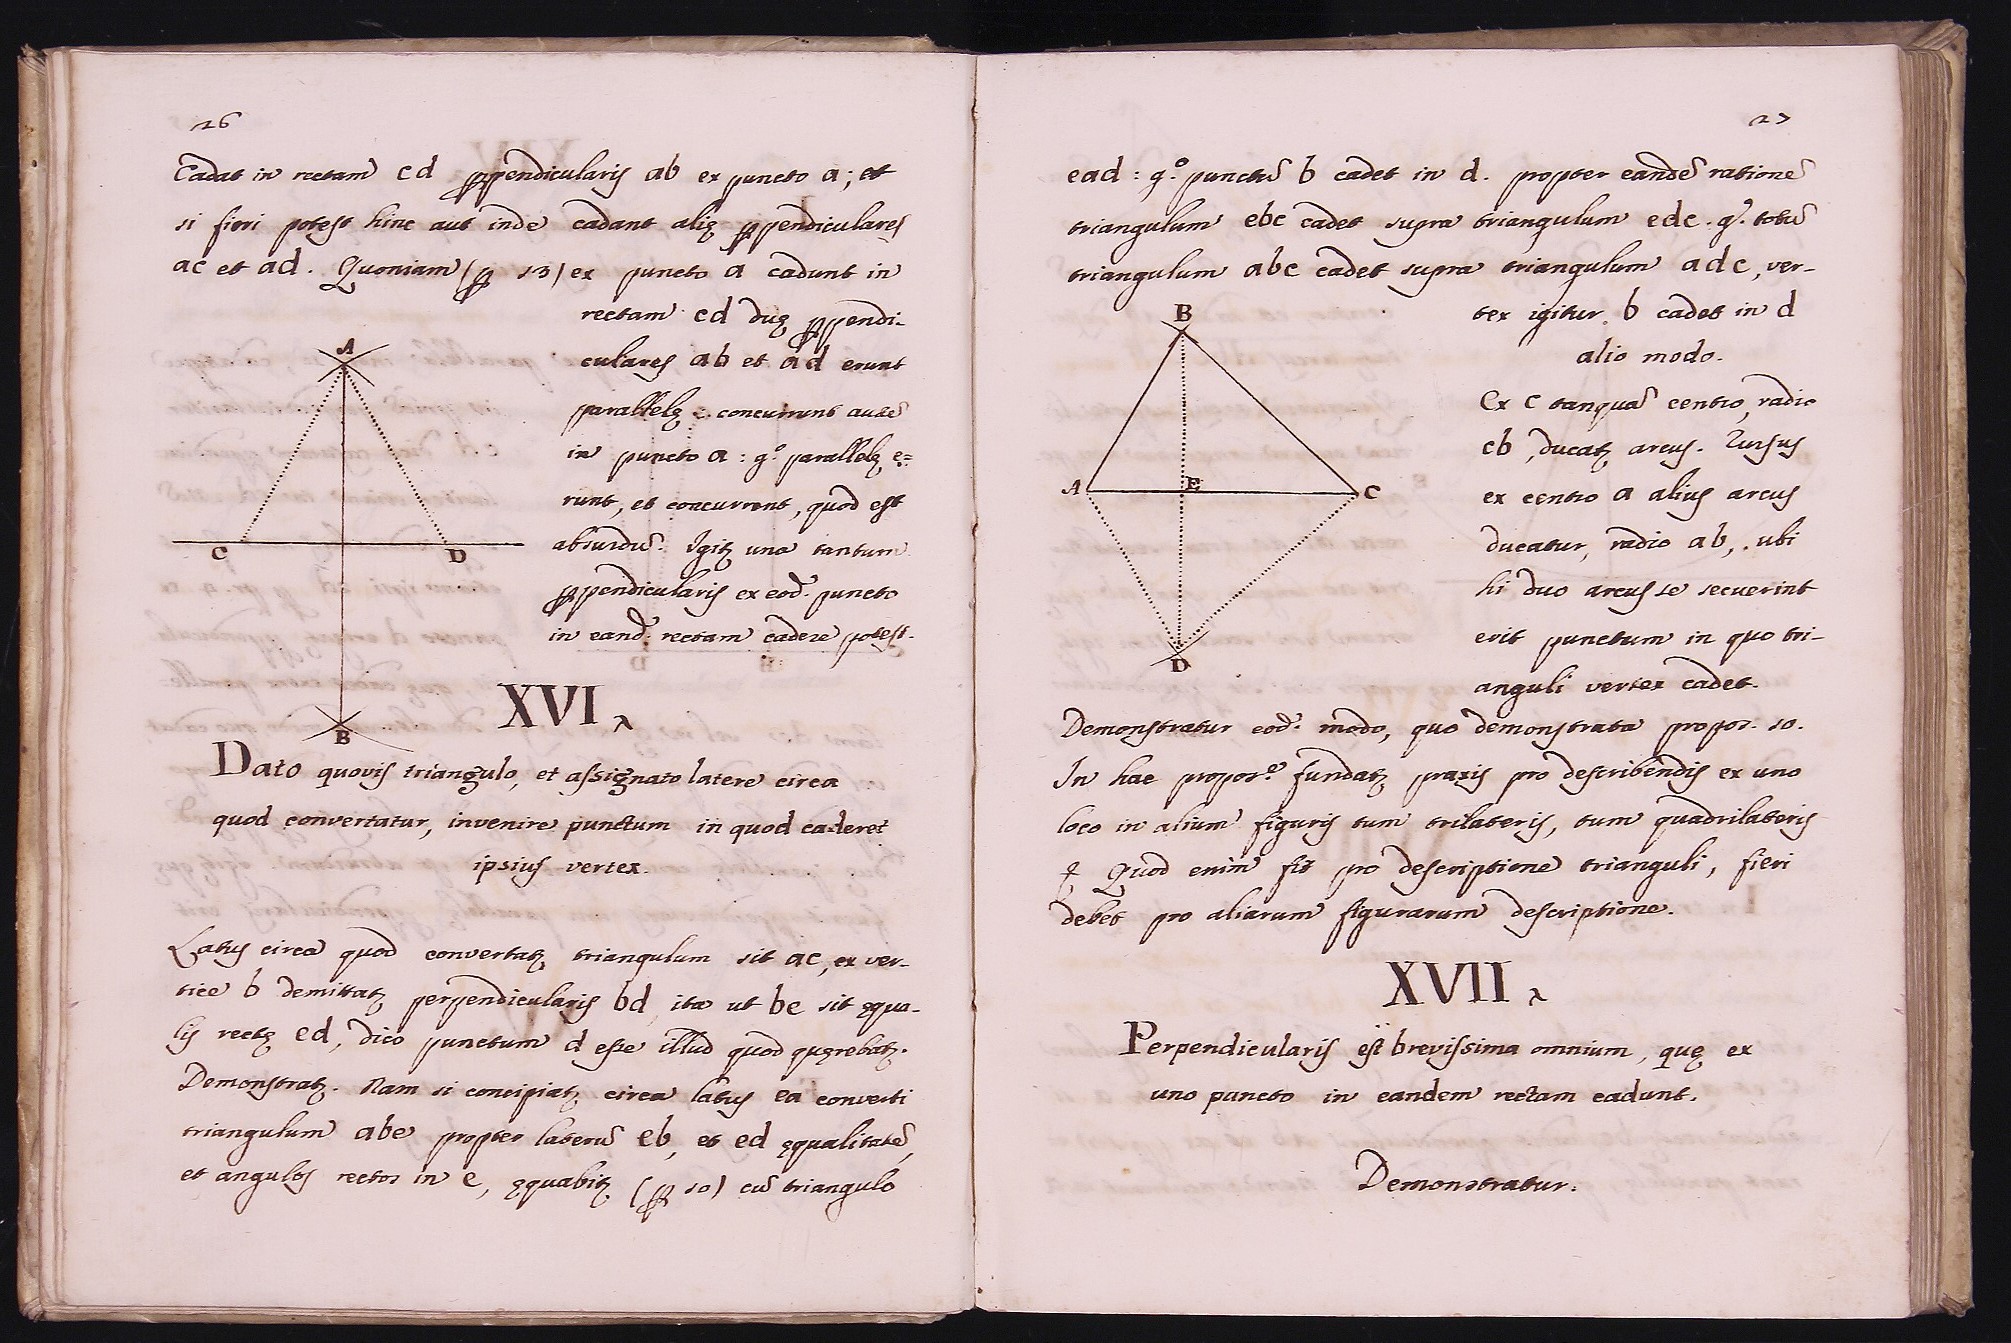 26
Cadat in rectam cd ꝑpendicularis ab ex puncto a; et
si fieri potest hinc aut inde cadant alię ꝑpendiculares
ac et ad. Quoniam (ꝑ 13) ex puncto a cadunt in
rectam cd duę ꝑpendi-
culares ab et ad erunt
parallelę: concurrunt autē
in puncto a: gͦ. parallelę e=
runt, et concurrent, quod est
absurdū. Igitʒ una tantum
ꝑpendicularis ex eod. puncto
in eand. rectam cadere potest.
A
C
D
B
XVI
Dato quovis triangulo, et assignato latere circa
quod convertatur, invenire punctum in quod caderet
ipsius vertex.
Latus circa quod convertatʒ triangulum sit ac, ex ver-
tice b demittatʒ perpendicularis bd, ita ut be sit ęqua-
lis rectę ed, dico punctum d esse illud quod quęrebatʒ.
Demonstratʒ. Nam si concipiatʒ circa latus ea converti
triangulum abe propter laterū eb, et ed ęqualitatē,
et angulos rectos in e, ęquabitʒ (ꝑ 10) cū triangulo
27
ead: gͦ. punctū b cadet in d. propter eandē rationē
triangulum ebc cadet supra triangulum edc. gͦ. totū
triangulum abc cadet supra triangulum adc, ver-
tex igitur b cadet in d
alio modo.
Ex c tanquā centro, radio
cb, ducatʒ arcus. Rursus
ex centro a alius arcus
ducatur, radio ab, ubi
hi duo arcus se secuerint
erit punctum in quo tri-
anguli vertex cadet.
B
A
E
C
D
Demonstratur eod. modo, quo demonstrata propos. 10.
In hac propos.ͤ fundatʒ praxis pro describendis ex uno
loco in alium figuris tum trilateris, tum quadrilateris
Quod enim fit pro descriptione trianguli, fieri
debet pro aliarum figurarum descriptione.
XVII
Perpendicularis est brevissima omnium, quę ex
uno puncto in eandem rectam cadunt.
Demonstratur.